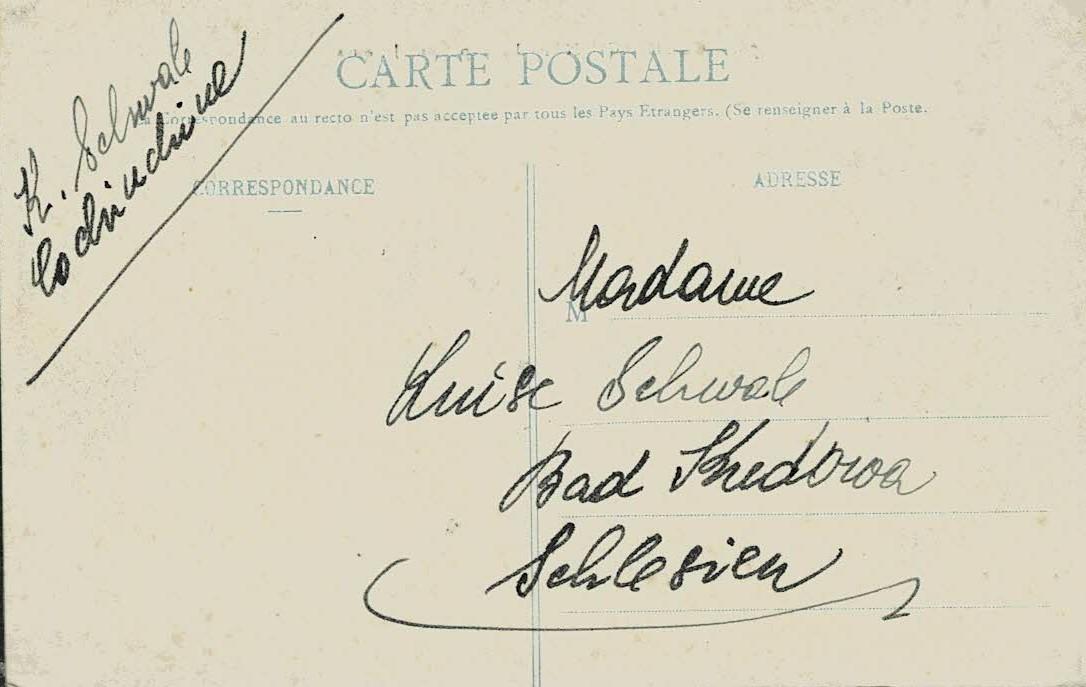 K. Schwale
Cochinchine
CARTE POSTALE
La Correspondance au recto n'est pas acceptée par tous les Pays Etrangers. (Se renseigner à la Poste.
CORRESPONDANCE
ADRESSE
M
Madame
Luise Schwale
Bad Kudowa
Schlesien